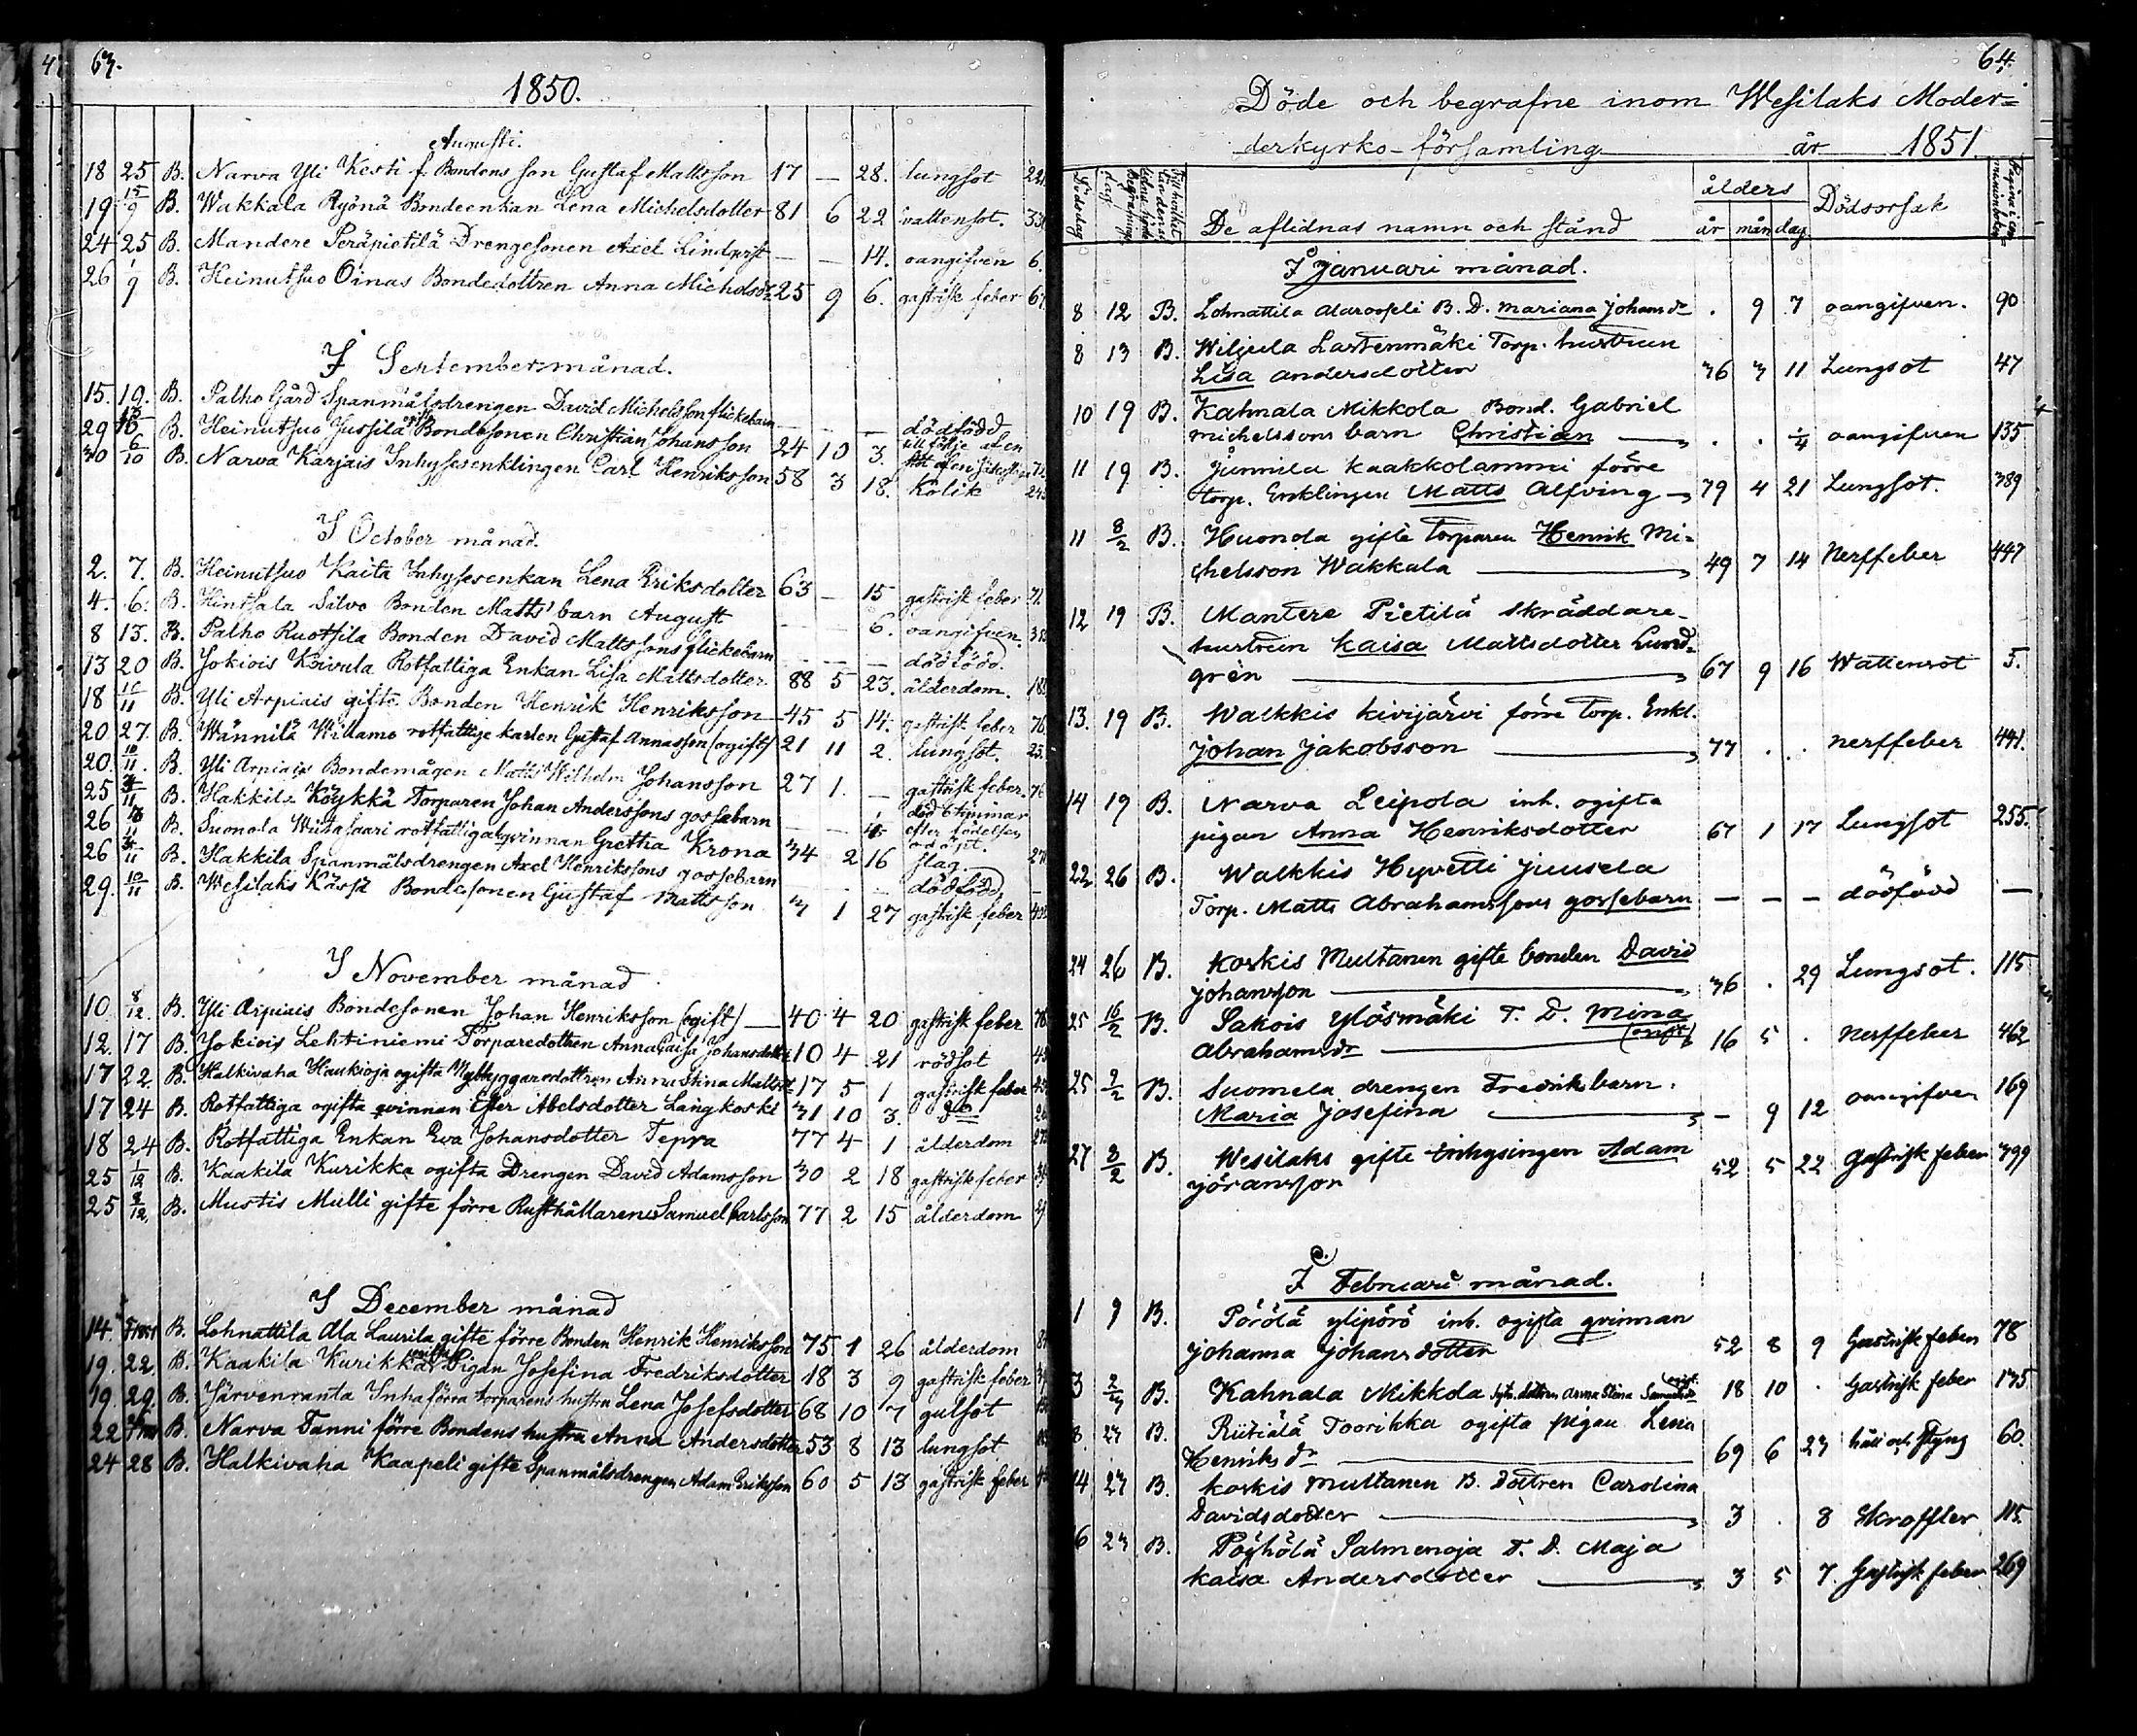 63.
1850.
Augusti.
18 25 B. Narva Yli Kesti f. Bondens son Gustaf Mattsson 17 — 28. lungsot 221
19 15/9 B. Wakkala Ryönä Bondeenkan Lena Michelsdotter 81 6 22 vattensot. 33
24 25 B. Mandere Peräpietilä Drengesonen Axel Lindqvist — — 14. oangifven 6.
26 1/9 B. Heinutsuo Oinas Bondedottren Anna Michelsdr 25 9 6. gastrisk feber 67
I September månad.
15. 19. B. Palho Gård Spanmålsdrengen David Michelsson flickebarn — — — dödfödd
29 B. Heinutsuo Jussila gifte Bondesonen Christian Johansson 24 10 3. till följe af en
30 6/10 B. Narva Karjais Inhysesenklingen Carl Henriksson 58 3 18. Kolik 243
I October månad.
2. 7. B. Heinutsuo Kaita Inhysesenkan Lena Eriksdotter 63 — 15 gastrisk feber 71.
4. 6. B. Hintsala Silvo Bonden Matts' barn August — — 6. oangifven.
8 13. B. Palho Ruotsila Bonden David Mattssons flickebarn — — — dödfödd.
13 20 B. Jokiois Koivula Rotfattiga Enkan Lisa Mattsdotter 88 5 23. ålderdom. 18
18 /11 B. Yli Arpiais gifte Bonden Henrik Henriksson 45 5 14. gastrisk feber 76.
20 27. B. Wännilä Widamo rotfattige karlen Gustaf Annasson (ogift) 21 11 2. lungsot. 25.
20. 10/11. B. Yli Arpiais Bondemågen Matts Wilhelm Johansson 27 1. — gastrisk feber. 76
25 3/11 B. Hakkila Köykkä Torparen Johan Anderssons gossebarn — — död 6 timmar
efter födelsen
odöpt.
26 /11 B. Suonola Wiitasaari rotfattiga qvinnan Gretha Krona 34 2 16 slag. 27
26 3/11 B. Hakkila Spanmålsdrengen Axel Henrikssons gossebarn — — — dödfödd —
29. 10/11 B. Wesilaks Kässä Bondesonen Gustaf Mattsson 3 1 27 gastrisk feber
I November månad
10. 8/12. B. Yli Arpiais Bondesonen Johan Henriksson (ogift) — 40 4 20 gastrisk feber 76
12. 17 B. Jokiois Lehtiniemi Torparedottren Anna Caisa Johansdotter 10 4 21 rödsot
17 22 B. Halkivaha Haukioja ogifta Nybyggaredottren Anna Stina Mattsdr 17 5 1 gastrisk feber
17 24 B. Rotfattiga ogifta qvinnan Ester Abelsdotter Långkoski 31 10 3. do
18 24 B. Rotfattiga Enkan Eva Johansdotter Teppa 77 4 1 ålderdom
25 1/12 B. Kaakila Kurikka ogifta Drengen David Adamsson 30 2 18 gastrisk feber
25 8/12. B. Mustis Mulli gifte förre Rusthållaren Samuel Carlsson 77 2 15 ålderdom
I December månad
14. B. Lohnattila Ala Laurila gifte förre Bonden Henrik Henriksson 75 1 26 ålderdom
19. 22. B. Kaakila Kurikka ogifta Pigan Josefina Fredriksdotter 18 3 9 gastrisk feber
19. 29. B. Järvenranta Inha förra torparens hustru Lena Josefsdotter 68 10 7 gulsot
22 B. Narva Tanni förre Bondens hustru Anna Andersdotter 53 8 13 lungsot
24 28 B. Halkivaha Kaapeli gifte Spanmålsdrengen Adam Eriksson 60 5 13 gastrisk feber
64.
Döde och begrafne inom Wesilaks Moder=
derkyrko-församling år 1851.
Dödsdag
ålders
De aflidnas namn och stånd år mån dag Dödsorsak
I Januari månad.
8 12 B. Lohnattila Alarosseli B. D. Mariana Johansdr . 9 7 oangifven. 90
8 13 B. Wiljula Lastenmäki Torp. hustrun
Lisa Andersdotter 36 3 11 Lungsot 47
10 19 B. Kahnala Mikkola Bond. Gabriel
Michelssons barn Christian — . . 1/4 oangifven 135
11 19 B. Junnila Kaakkolammi förre
torp. Enklingen Matts Alfving — 79 4 21 Lungsot. 389
11 8/2 B. Huonola gifte Torparen Henrik Mi=
chelsson Wakkala — 49 7 14 Nerffeber 447
12 19 B. Mantere Pietilä skräddare-
hustrun Kaisa Mattsdotter Lund=
grén — 67 9 16 Wattensot 5.
13. 19 B. Walkkis Kivijärvi förre Torp. Enkl.
Johan Jakobsson — 77 . . nerffeber 441.
14 19 B. Narva Leipola inh. ogifta
pigan Anna Henriksdotter 67 1 17 Lungsot 255.
22 26 B. Walkkis Hyvetti Juusela
Torp. Matts Abrahamssons gossebarn — — — dödfödd —
24 26 B. Koskis Multanen gifte bonden David
Johansson — 36 . 29 Lungsot. 115
25 16/2 B. Sakois Ylösmäki T. D. Mina
Abrahamsdr — (ogift) 16 5 . Nerffeber 462
25 2/2 B. Suomela drengen Fredriks barn.
Maria Josefina — — 9 12 oangifven 169
27 3/2 B. Wesilaks gifte inhysingen Adam
Jöransson 52 5 22 Gastrisk feber 399
I Februari månad.
1 9 B. Pörölä Ylipörö inh. ogifta qvinnan
Johanna Johansdotter 52 8 9 Gastrisk feber 78
3 2/3 B. Kahnala Mikkola dottren Anna Stina ogift 18 10 . Gastrisk feber 135
8. 23 B. Riitiälä Toorikka ogifta pigan Lena
Henriksdr — 69 6 23 håll och styng 60.
14 23 B. Koskis Multanen B. Dottren Carolina
Davidsdotter — 3 . 8 Skrofler 115.
16 23 B. Pöyhölä Salmenoja T. D. Maja
Kaisa Andersdotter — 3 5 7 Gastrisk feber 269